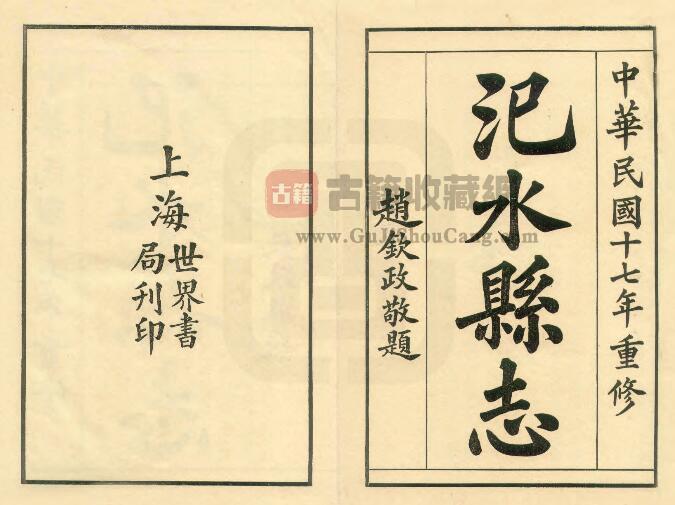 中華民國十七年重修
汜水縣志
趙欽政敬題
上海世界書局刊印
古籍
古籍收藏網
www.GuJiShouCang.com